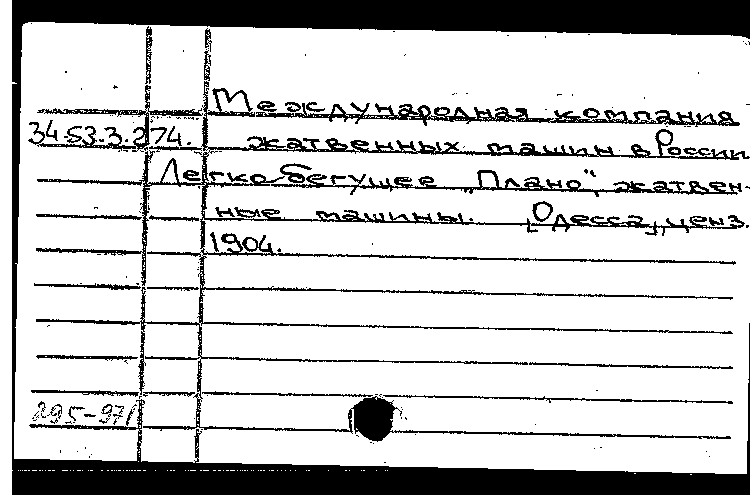 Международная компания
34.53.3.274. жатвенных машин в России
Легкобегущее „Плано“, жатвен-
ные машины. [Одесса], ценз.
1904.
295-971